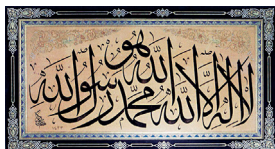 لا إله إلا الله محمد رسول الله
هو